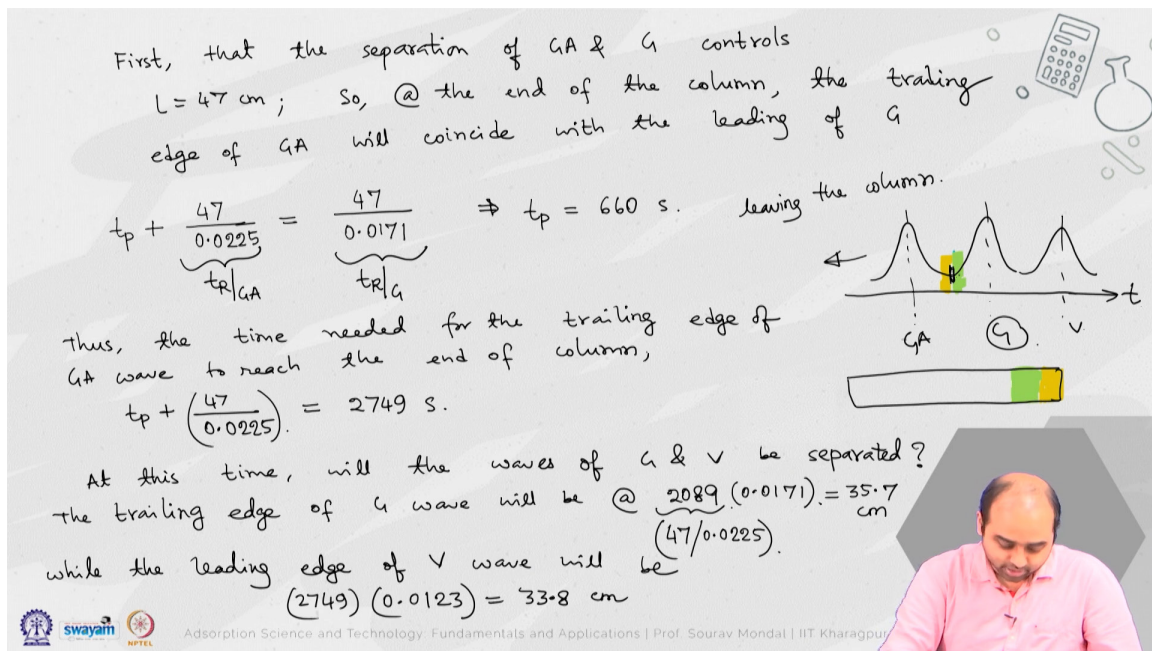 First, that the separation of GA & G controls
L = 47 cm ; So, @ the end of the column, the trailing
edge of GA will coincide with the leading of G
tp + 47/0.0225 = 47/0.0171 ⇒ tp = 660 s. leaving the column.
tR|GA tR|G
t
GA G V
Thus, the time needed for the trailing edge of
GA wave to reach the end of column,
tp + (47/0.0225). = 2749 s.
At this time, will the waves of G & V be separated?
The trailing edge of G wave will be @ 2089 (0.0171). = 35.7 cm
(47/0.0225).
while the leading edge of V wave will be
(2749) (0.0123) = 33.8 cm
swayam NPTEL
Adsorption Science and Technology: Fundamentals and Applications | Prof. Sourav Mondal | IIT Kharagpur